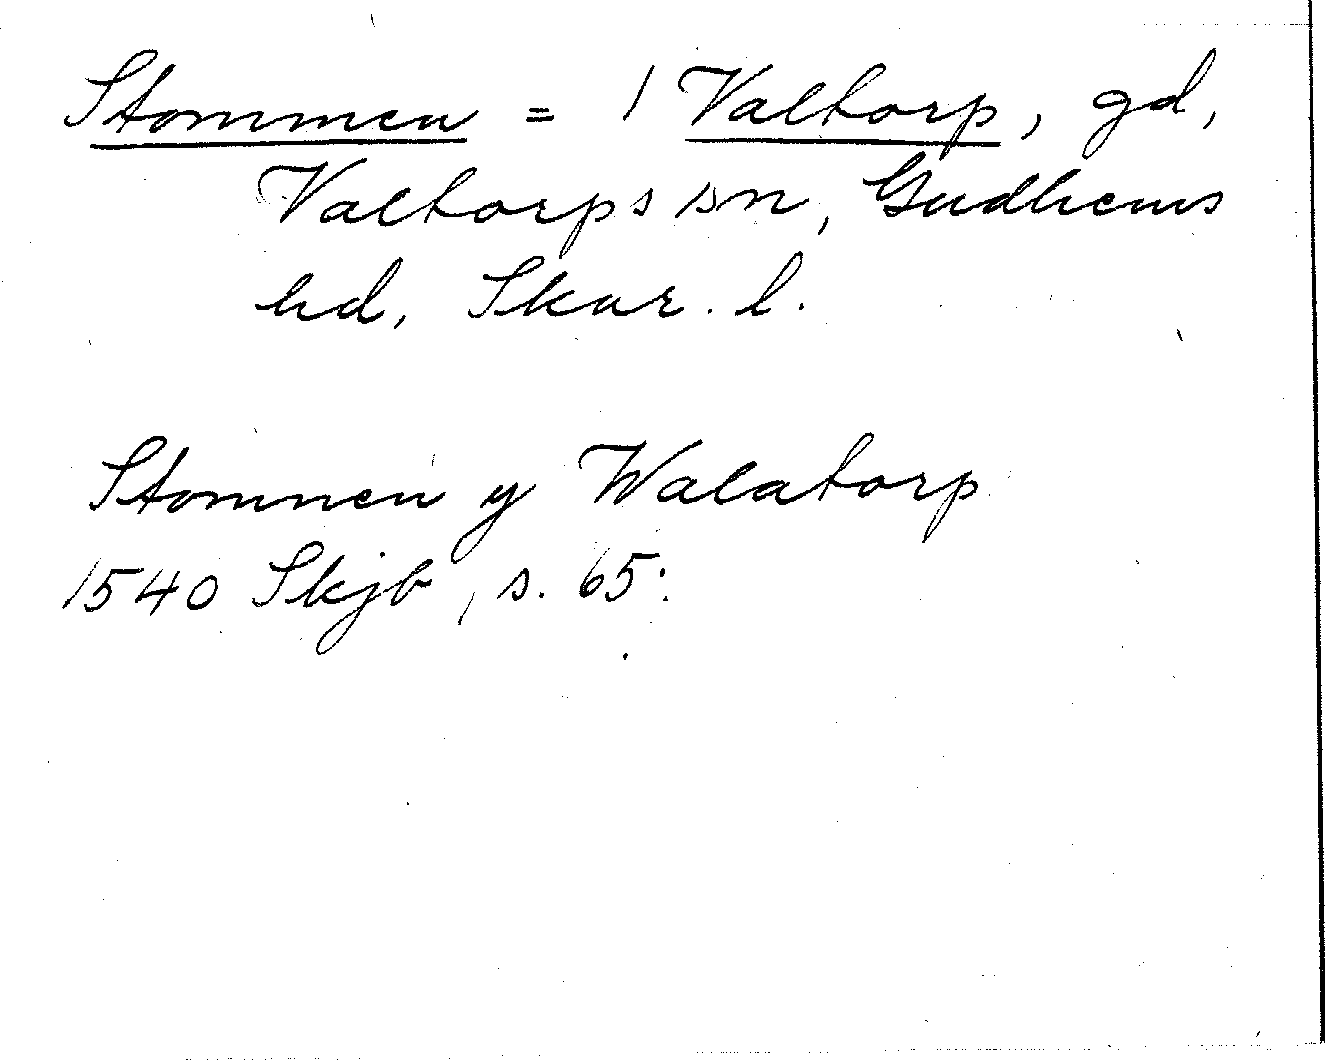 Stommen = 1 Valtorp, gd,
Valtorps sn, Gudhems
hd, Skar. l.
Stomnen y Walatorp
1540 Skjb, s. 65.